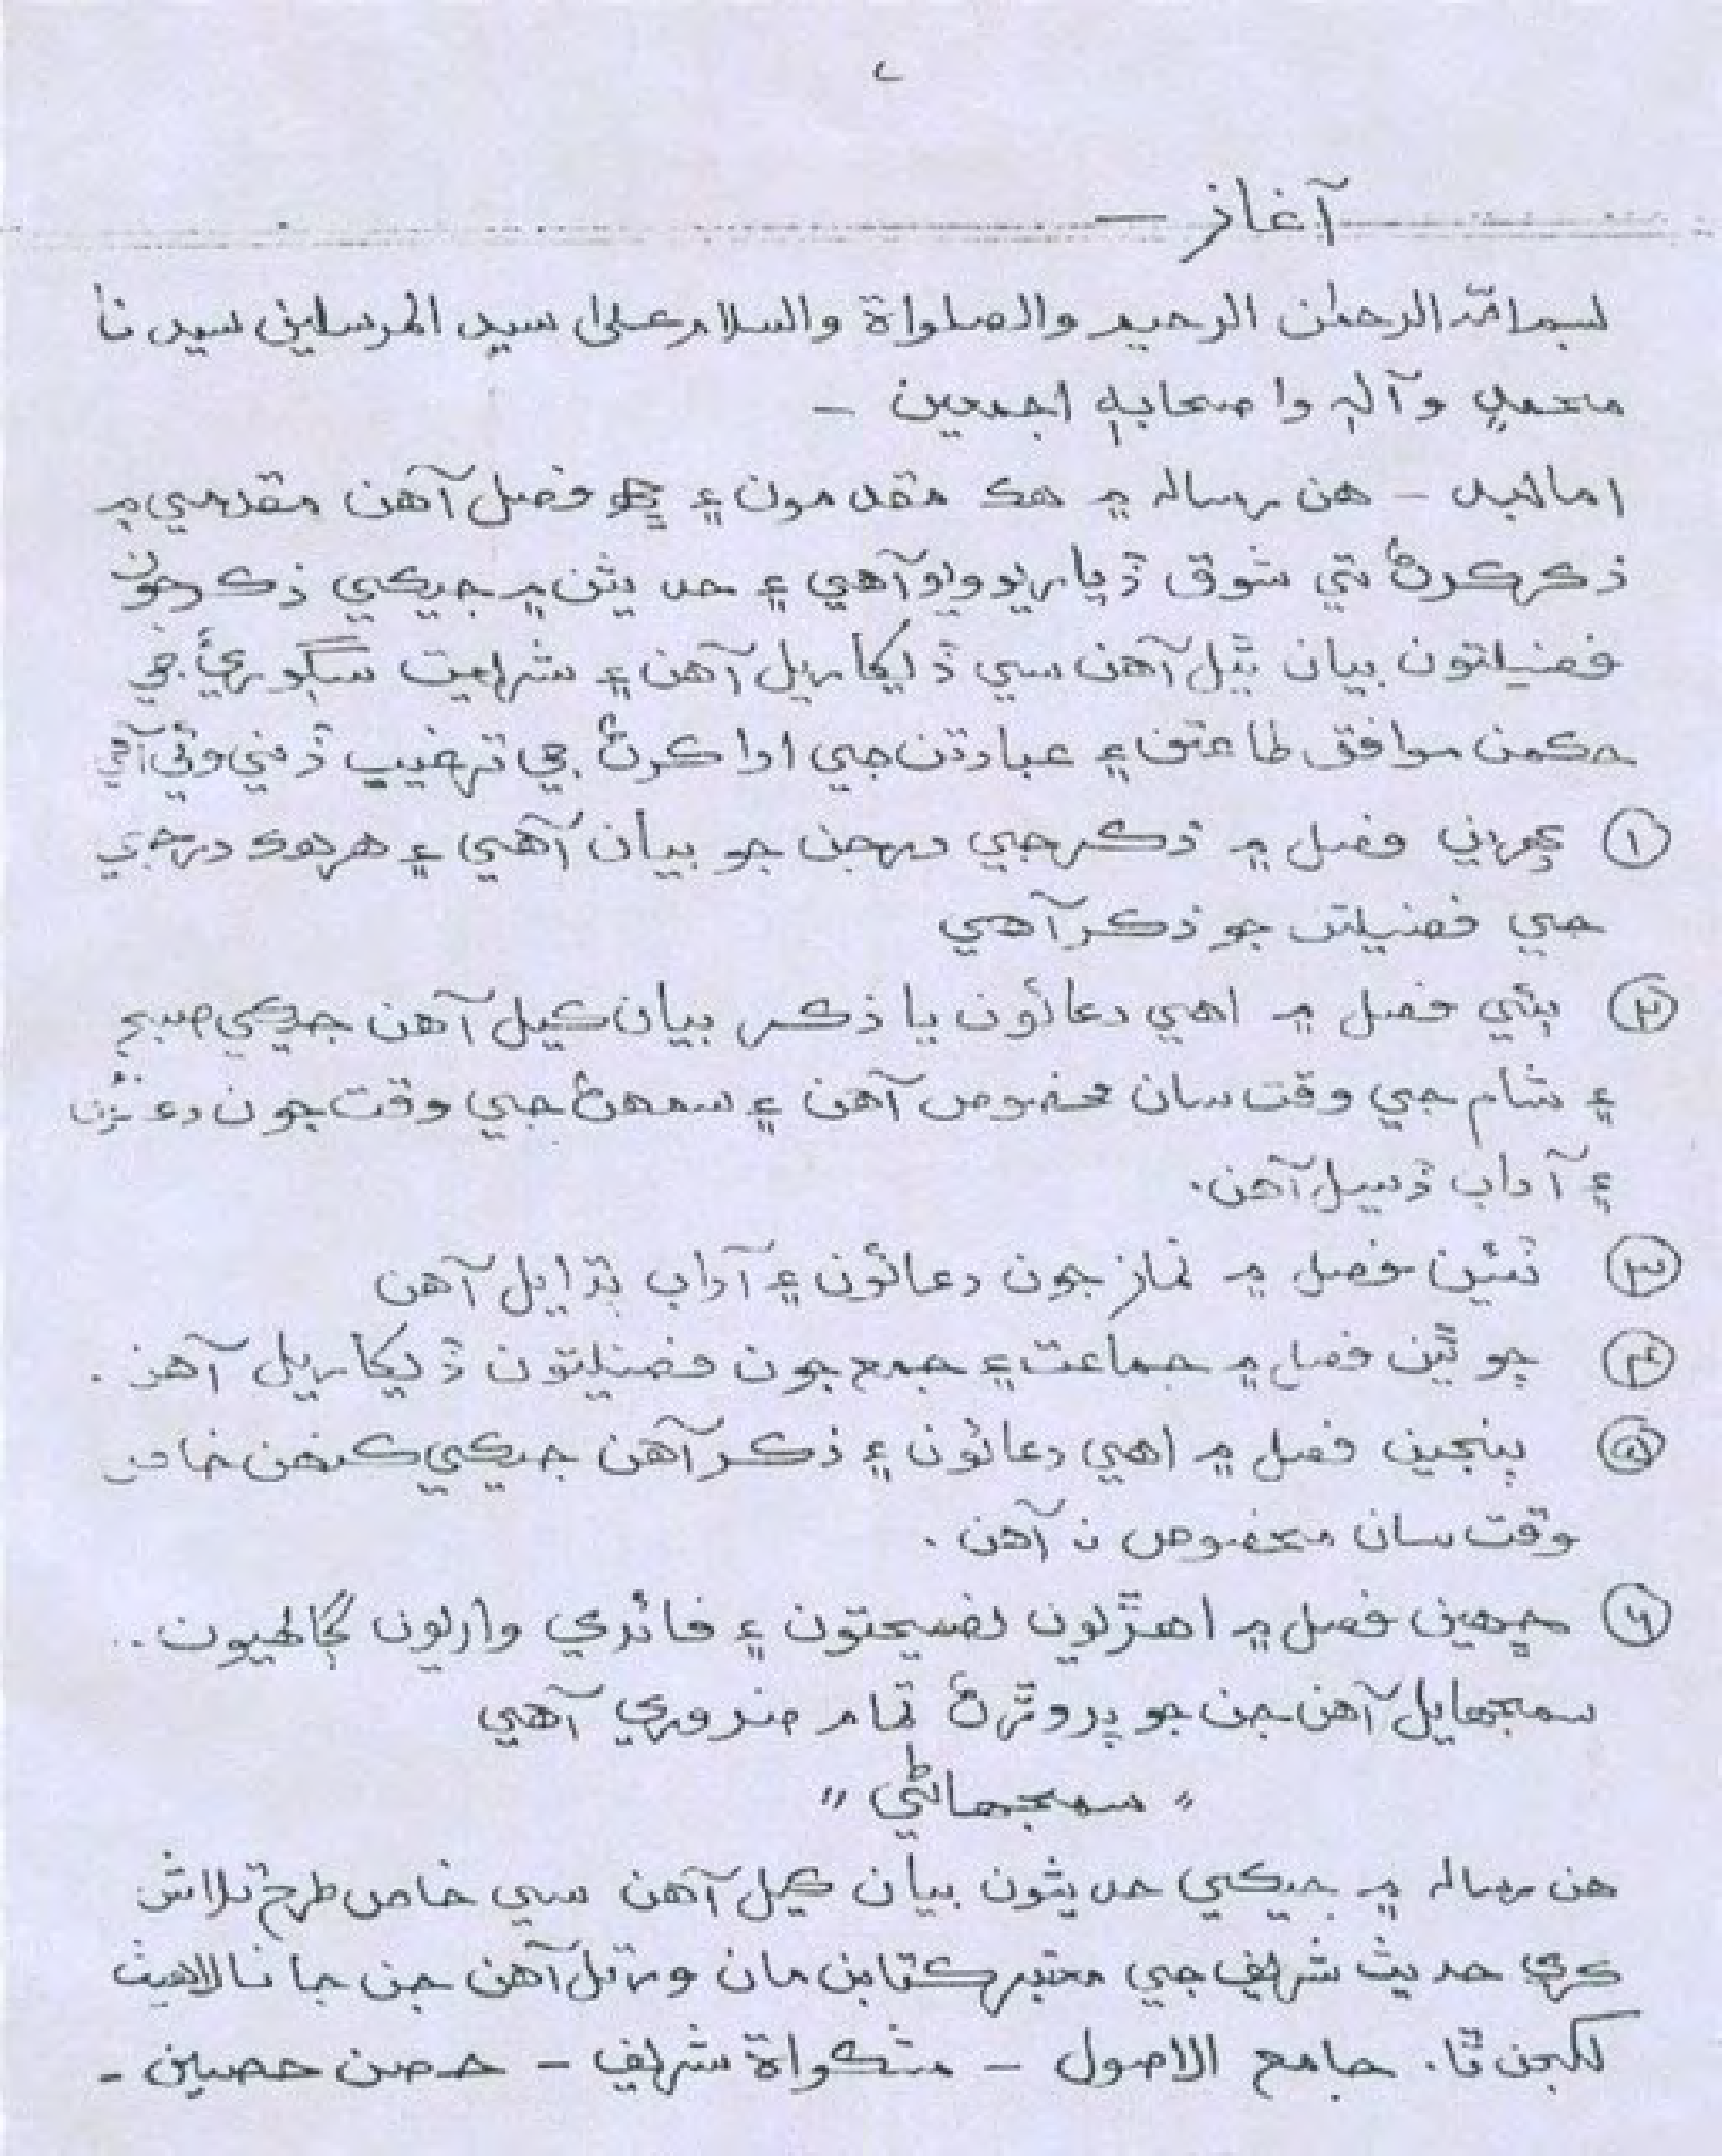 آغاز —
بسم الله الرحمٰن الرحيم والصلواة والسلام علىٰ سيد المرسلين سيدنا
محمدٍ وآلهٖ واصحابهٖ اجمعين —
امابعد — هن رساله ۾ هڪ مقدمون ۽ ڇهه فصل آهن مقدمي ۾
ذڪر ڪرڻ تي شوق ڏياريو ويو آهي ۽ حديثن ۾ جيڪي ذڪر جون
فضيلتون بيان ٿيل آهن سي ڏيکاريل آهن ۽ شريعت سڳوريءَ جي
حڪمن موافق طاعتن ۽ عبادتن جي ادا ڪرڻ جي ترغيب ڏني وئي آهي
① پهرئين فصل ۾ ذڪر جي درجن جو بيان آهي ۽ هر هڪ درجي
جي فضيلتن جو ذڪر آهي
② ٻئي فصل ۾ اهي دعائون يا ذڪر بيان ڪيل آهن جيڪي صبح
۽ شام جي وقت سان مخصوص آهن ۽ سمهڻ جي وقت جون دعائون
۽ آداب ڏسيل آهن.
③ ٽئين فصل ۾ نماز جون دعائون ۽ آداب ٻڌايل آهن
④ چوٿين فصل ۾ جماعت ۽ جمع جون فضيلتون ڏيکاريل آهن.
⑤ پنجين فصل ۾ اهي دعائون ۽ ذڪر آهن جيڪي ڪنهن خاص
وقت سان مخصوص نه آهن.
⑥ ڇهين فصل ۾ اهڙيون نصيحتون ۽ فائدي واريون ڳالهيون..
سمجهايل آهن جن جو پروڙڻ تمام ضروري آهي
" سمجهاڻي "
هن رساله ۾ جيڪي حديثون بيان ڪيل آهن سي خاص طرح تلاش
ڪري حديث شريف جي معتبر ڪتابن مان ورتل آهن جن جا نالا هيٺ
لکجن ٿا. جامع الاصول — مشڪواة شريف — حصن حصين —